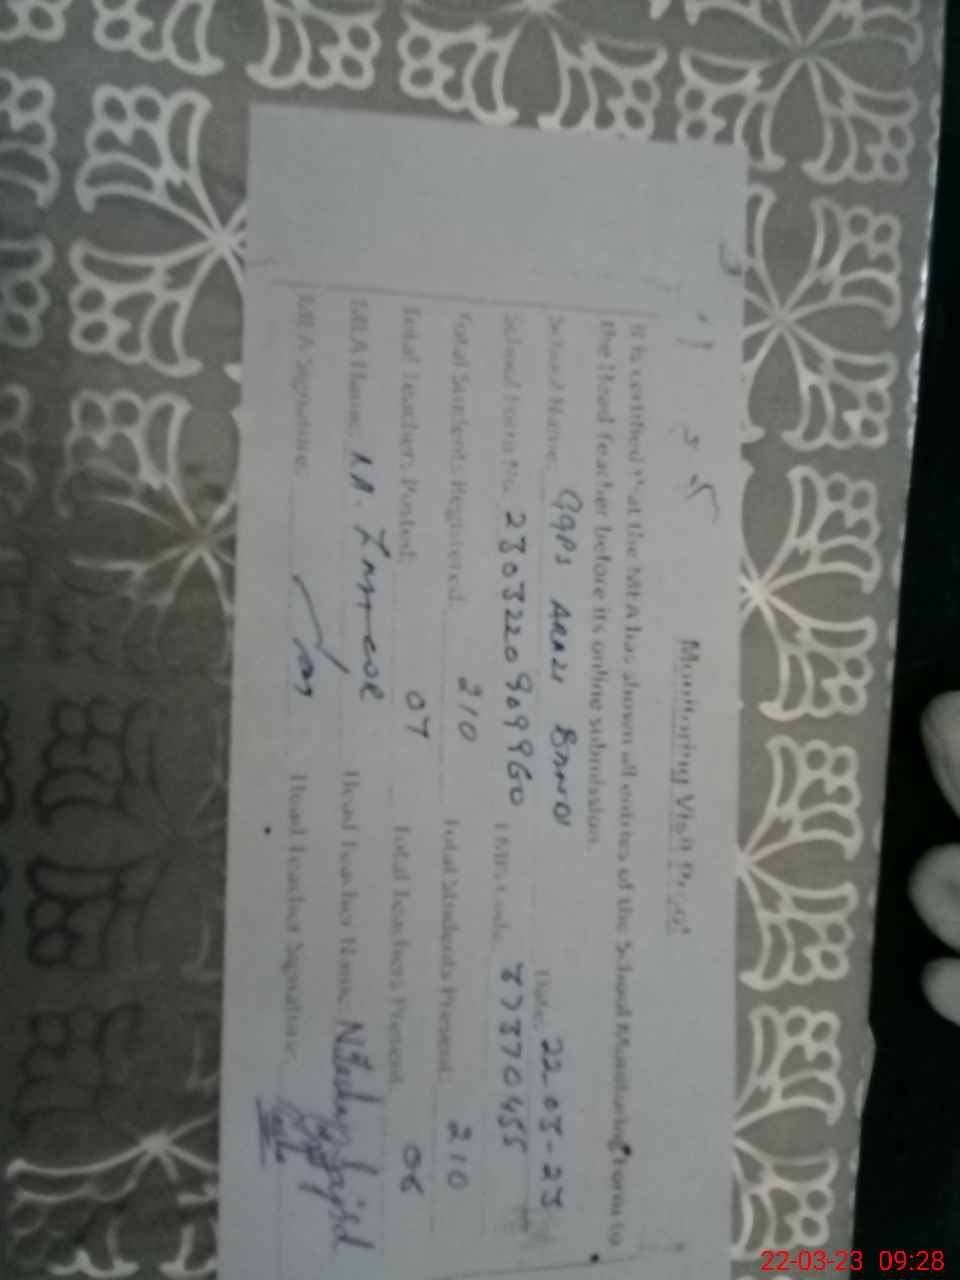 Monitoring Visit Proof
It is certified that the MEA has shown all entries of the School Monitoring Form to
the Head Teacher before its online submission.
School Name: GGPS ARAZI Date: 22-03-23
School Form No: 23032209099960 EMIS Code: 37370455
Total Students Registered: 210 Total Students Present: 210
Total Teachers Posted: 07 Total Teachers Present 06
MEA Name: Head Teacher Name
MEA Signature: Head Teacher Signature:
22-03-23 09:28